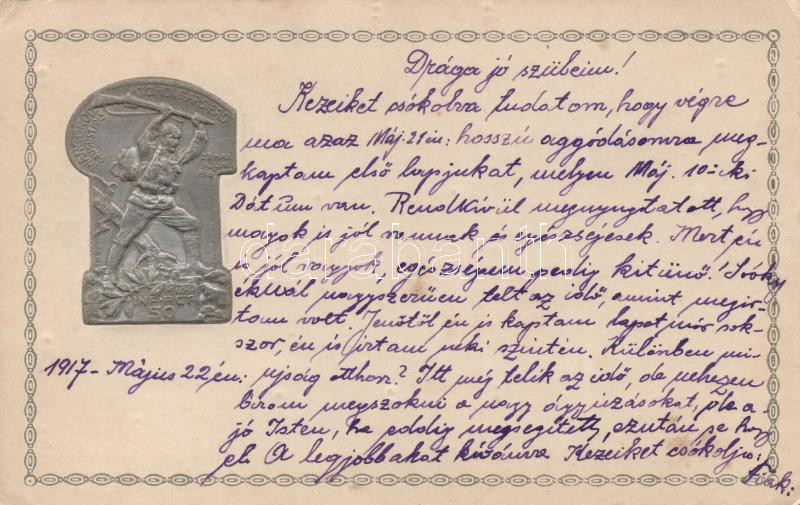 Drága jó szüleim!
Kezeiket csókolva tudatom, hogy végre
ma azaz Máj. 21 én: hosszú aggódásomra meg-
kaptam első lapjukat, melyen Máj. 10-iki
Dátum van. Rendkívül megnyugtatott, hogy
magok is jól vannak és egészségesek. Mert én
is jól vagyok, egészségem pedig kitünő!
éknál nagyszerüen telt az idő, amint megir-
tam volt. Jenőtől én is kaptam lapot már sok-
szor, én is írtam neki szintén. Különben mi
1917 - Május 22 én: ujság otthon? Itt még telik az idő, de nehezen
birom megszokni a nagy ágyúzásokat, de a
jó Isten, ha eddig megsegített, ezután se hagy
el. A legjobbakat kívánva Kezeiket csókolja:
Fiok:
INF. REG.
50
darabanth